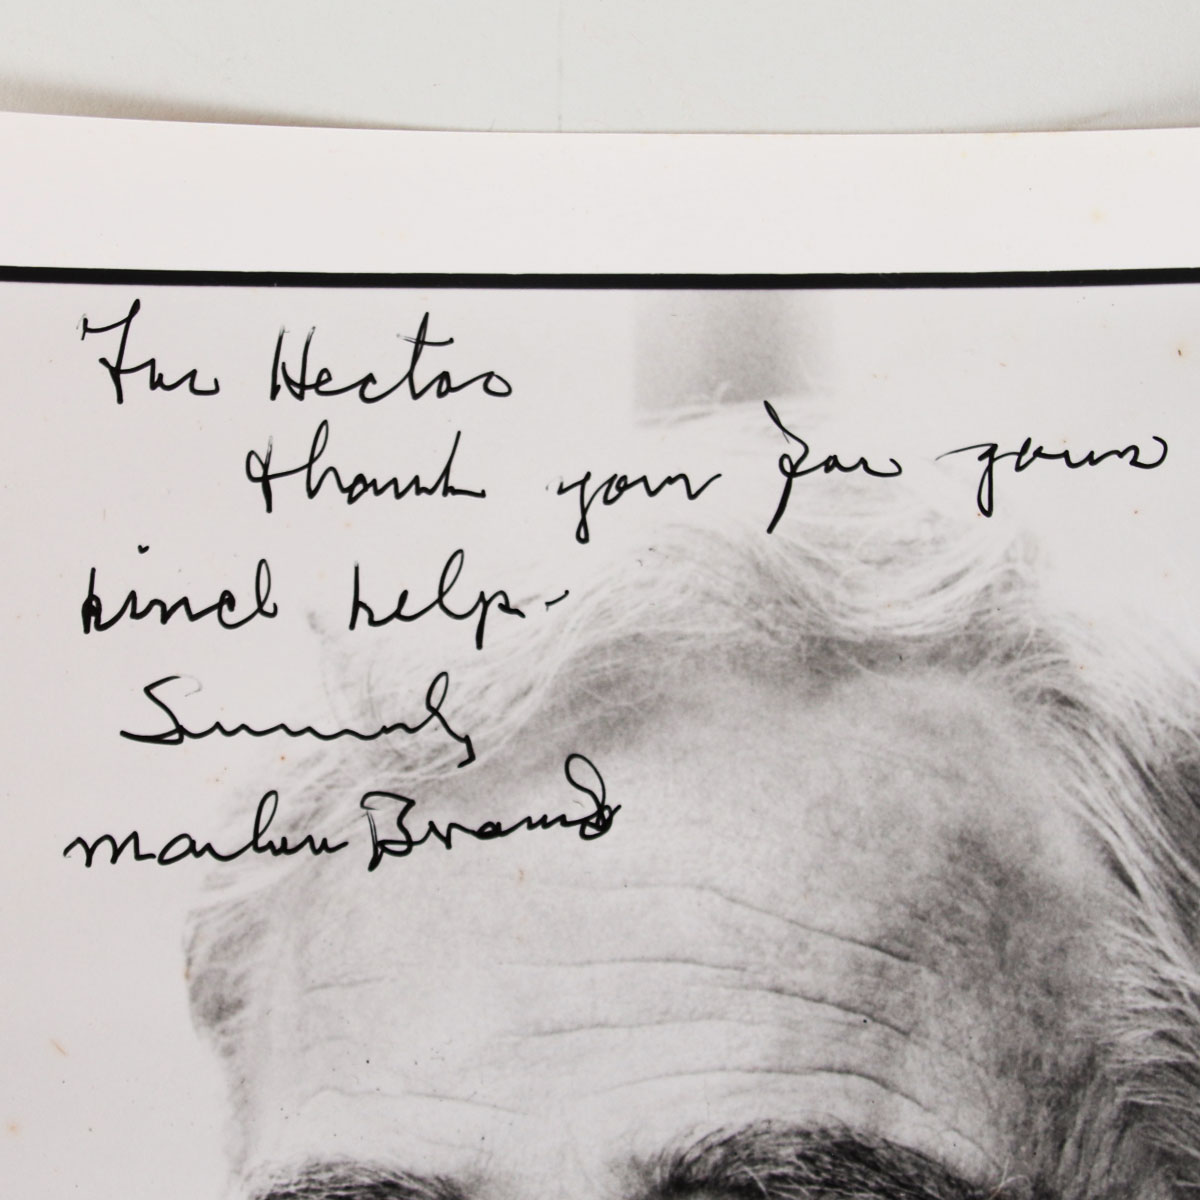 For Hector
thank you for your
kind help.
Sincerely,
Marlon Brando